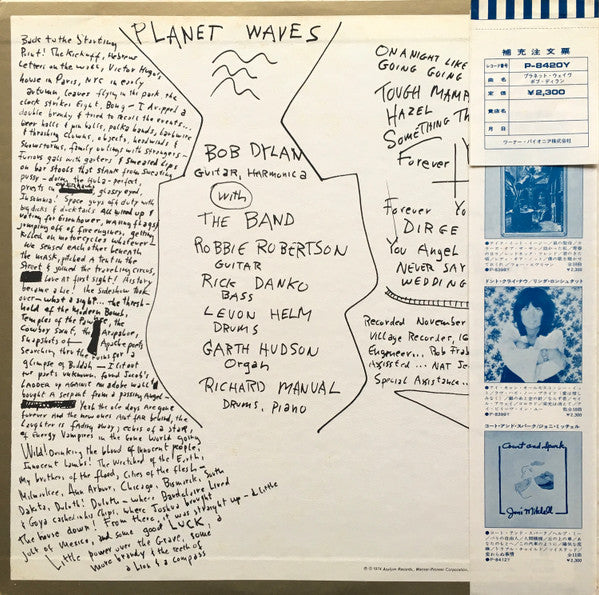 PLANET WAVES
Back to the Starting
Point! The Kickoff, Hebrew
Letters on the walls, Victor Hugo's
house in Paris, NYC in early
autumn, leaves flying in the park, the
clock strikes Eight, Bong — I dropped a
double brandy & tried to recall the events...
beer halls & pin balls, polka bands, barbwire
& thrashing clowns, objects, headwinds &
snowstorms, family outings with strangers —
Furious gals with garters & smeared lips
on bar stools that stank from sweating
pussy — doing the hula — perfect,
priests in glossy eyed,
Insomnia! Space guys off duty with
big dicks & ducktails All wired up &
voting for Eisenhower, waving flags &
jumping off of fire engines, getting
killed on motorcycles whatever —
We sensed each other beneath
the mask, pitched a tent in the
Street & joined the traveling circus,
Love at first sight! History
became a lie! the sideshow took
over — what a sight... the thresh-
hold of the Modern Bomb,
Temples of the the
Cowboy Saint, the Arapahoe,
snapshots of Apache poets
searching thru the ruins for a
glimpse of Buddah — I lit out
for parts unknown, found Jacob's
Ladder up against an adobe wall &
bought a serpent from a passing Angel —
Yeah the ole days Are gone
forever And the new ones Aint far behind, the
Laughter is fading away, echos of a star,
of Energy Vampires in the Gone World going
Wild! Drinking the blood of innocent people,
Innocent Lambs! The Wretched of the Earth,
My brothers of the flood, Cities of the flesh —
Milwaukee, Ann Arbor, Chicago, Bismarck, South
Dakota, Duluth! Duluth — where Baudelaire Lived
& Goya cashed in his Chips, where Joshua brought
the house down! From there, it was straight up — a little
jolt of Mexico, and some good LUCK, a
Little power over the Grave, some
more brandy & the teeth of
a Lion & a compass
BOB DYLAN
Guitar, Harmonica
With
THE BAND
ROBBIE ROBERTSON
GUITAR
RICK DANKO
BASS
LEVON HELM
DRUMS
GARTH HUDSON
Organ
RICHARD MANUAL
DRUMS, PIANO
ON A NIGHT LIKE
GOING GOING
TOUGH MAMA
HAZEL
SOMETHING TH
Forever
Forever Yo
DIRGE
You Angel
NEVER SAY
WEDDING
Recorded November
Village Recorder, 16
Engineer... Rob Frab
Assisted... NAT Je
Special Assistance..
℗ © 1974 Asylum Records, Warner-Pioneer Corporation,
補充注文票
レコード番号 P-8420Y
曲名 プラネット・ウェイヴ
ボブ・ディラン
定価 ¥2,300
貴店名
月日
ワーナー・パイオニア株式会社
●P-8399Y ¥2,300
ドント・クライ・ナウ/リンダ・ロンシュタット
¥2,300
コート・アンド・スパーク/ジョニ・ミッチェル
Court and Spark
Joni Mitchell
●P-8412Y ¥2,300